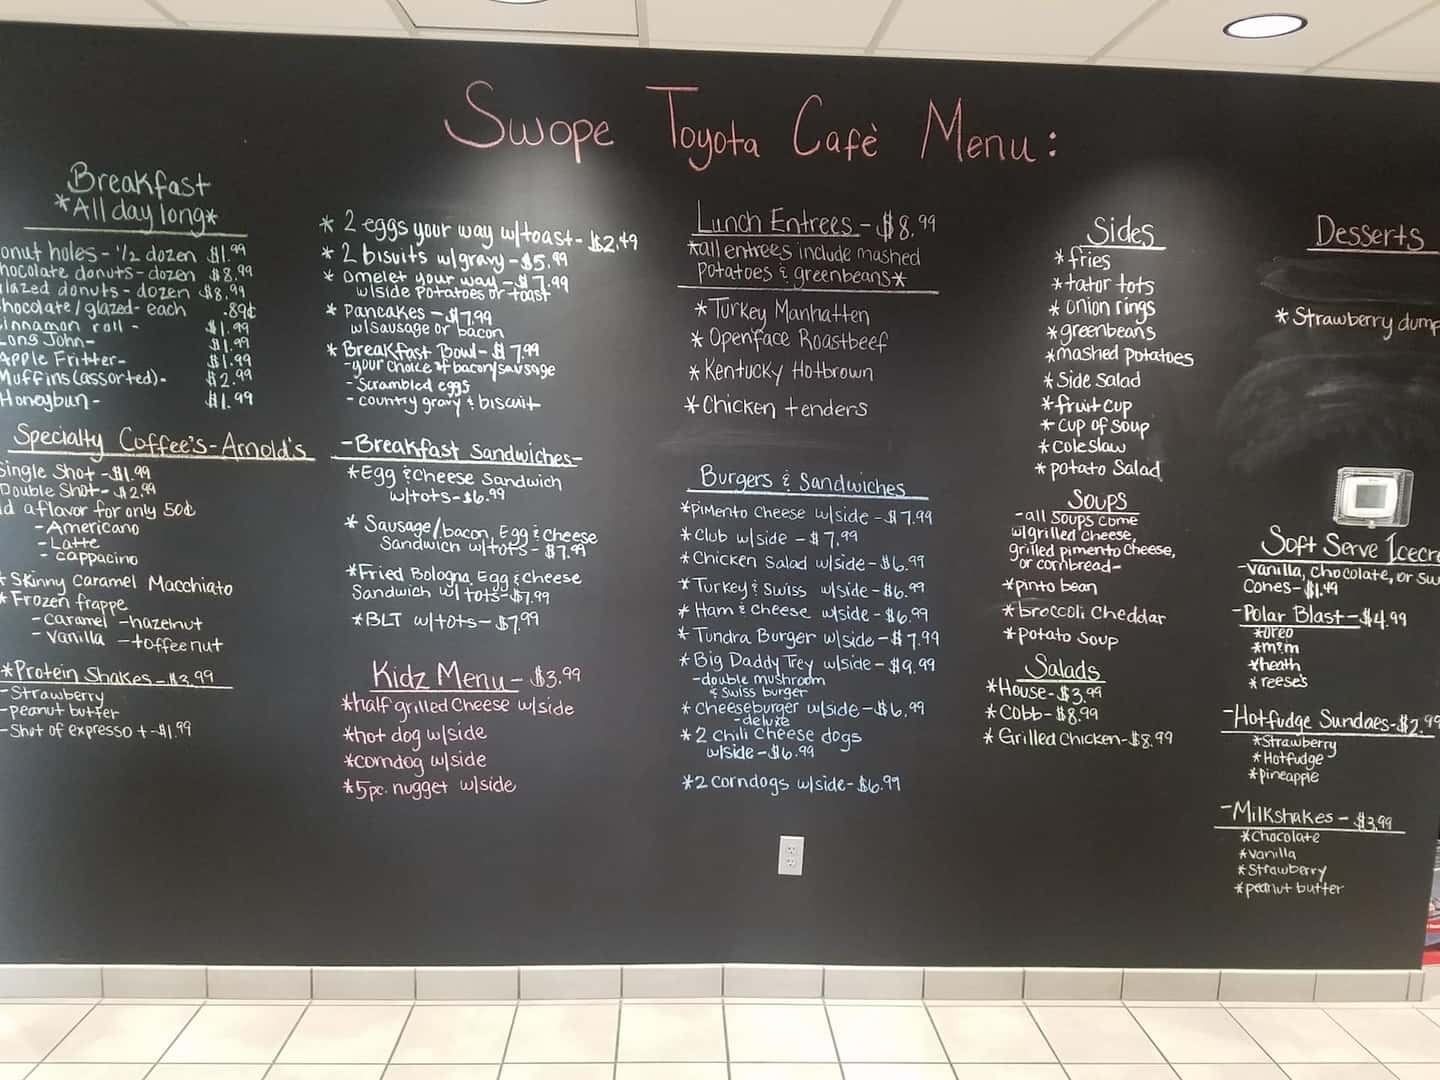 Swope Toyota Cafè Menu:
Breakfast
*All day long*
onut holes - 1/2 dozen $1.99
hocolate donuts - dozen $8.99
lazed donuts - dozen $8.99
hocolate/glazed - each .89¢
innamon roll - $1.99
Long John - $1.99
Apple Fritter - $1.99
Muffins (assorted) - $2.99
Honeybun - $1.99
Specialty Coffee's - Arnold's
Single Shot - $1.99
Double Shot - $2.99
d a flavor for only 50¢
- Americano
- Latte
- cappacino
* Skinny Caramel Macchiato
* Frozen frappe
- caramel - hazelnut
- vanilla - toffee nut
*Protein Shakes - $3.99
- Strawberry
- peanut butter
- Shot of expresso + $1.99
* 2 eggs your way w/toast - $2.49
* 2 biscuits w/gravy - $5.99
* omelet your way - $7.99
w/side potatoes or toast
* Pancakes - $7.99
w/sausage or bacon
* Breakfast Bowl - $7.99
- your choice of bacon/sausage
- scrambled eggs
- country gravy & biscuit
- Breakfast Sandwiches -
*Egg & Cheese Sandwich
w/tots - $6.99
* Sausage/bacon, Egg & Cheese
Sandwich w/tots - $7.99
*Fried Bologna, Egg & Cheese
Sandwich w/ tots - $7.99
*BLT w/tots - $7.99
Kidz Menu - $3.99
*half grilled cheese w/side
*hot dog w/side
*corndog w/side
*5pc. nugget w/side
Lunch Entrees - $8.99
*all entrees include mashed
potatoes & greenbeans*
* Turkey Manhatten
* Openface Roastbeef
* Kentucky Hotbrown
* Chicken tenders
Burgers & Sandwiches
*Pimento Cheese w/side - $7.99
* Club w/side - $7.99
* Chicken Salad w/side - $6.99
* Turkey & Swiss w/side - $6.99
* Ham & Cheese w/side - $6.99
* Tundra Burger w/side - $7.99
* Big Daddy Trey w/side - $9.99
- double mushroom
& Swiss burger
* Cheeseburger w/side - $6.99
- deluxe
* 2 chili cheese dogs
w/side - $6.99
*2 corndogs w/side - $6.99
Sides
* fries
* tator tots
* onion rings
*greenbeans
*mashed potatoes
* Side Salad
* fruit cup
* cup of soup
* coleslaw
* potato salad
Soups
- all soups come
w/grilled cheese,
grilled pimento cheese,
or cornbread -
*pinto bean
*broccoli Cheddar
*potato soup
Salads
*House - $3.99
*Cobb - $8.99
* Grilled Chicken - $8.99
Desserts
* Strawberry dump
Soft Serve Icecre
- vanilla, chocolate, or sw
Cones - $1.49
- Polar Blast - $4.99
*oreo
*m&m
*heath
* reese's
- Hotfudge Sundaes - $2.99
*Strawberry
*Hotfudge
*pineapple
- Milkshakes - $3.99
*Chocolate
*vanilla
*Strawberry
*peanut butter